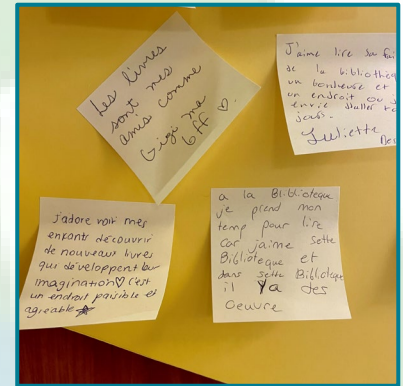 Les livres
sont mes
amis comme
Gigi ma
bff ♡.
J'aime lire sa fai
de la bibliothèq
un bonheure et
un endroit ou j
envie d'aller to
jours.
Juliette
j'adore voir mes
enfants découvrir
de nouveaux livres
qui développent leur
imagination♡ C'est
un endroit paisible et
agréable
a la Biblioteque
je prend mon
temp pour lire
car jaime sette
Biblioteque et
dans sette Biblioteque
il Ya des
Oeuvre